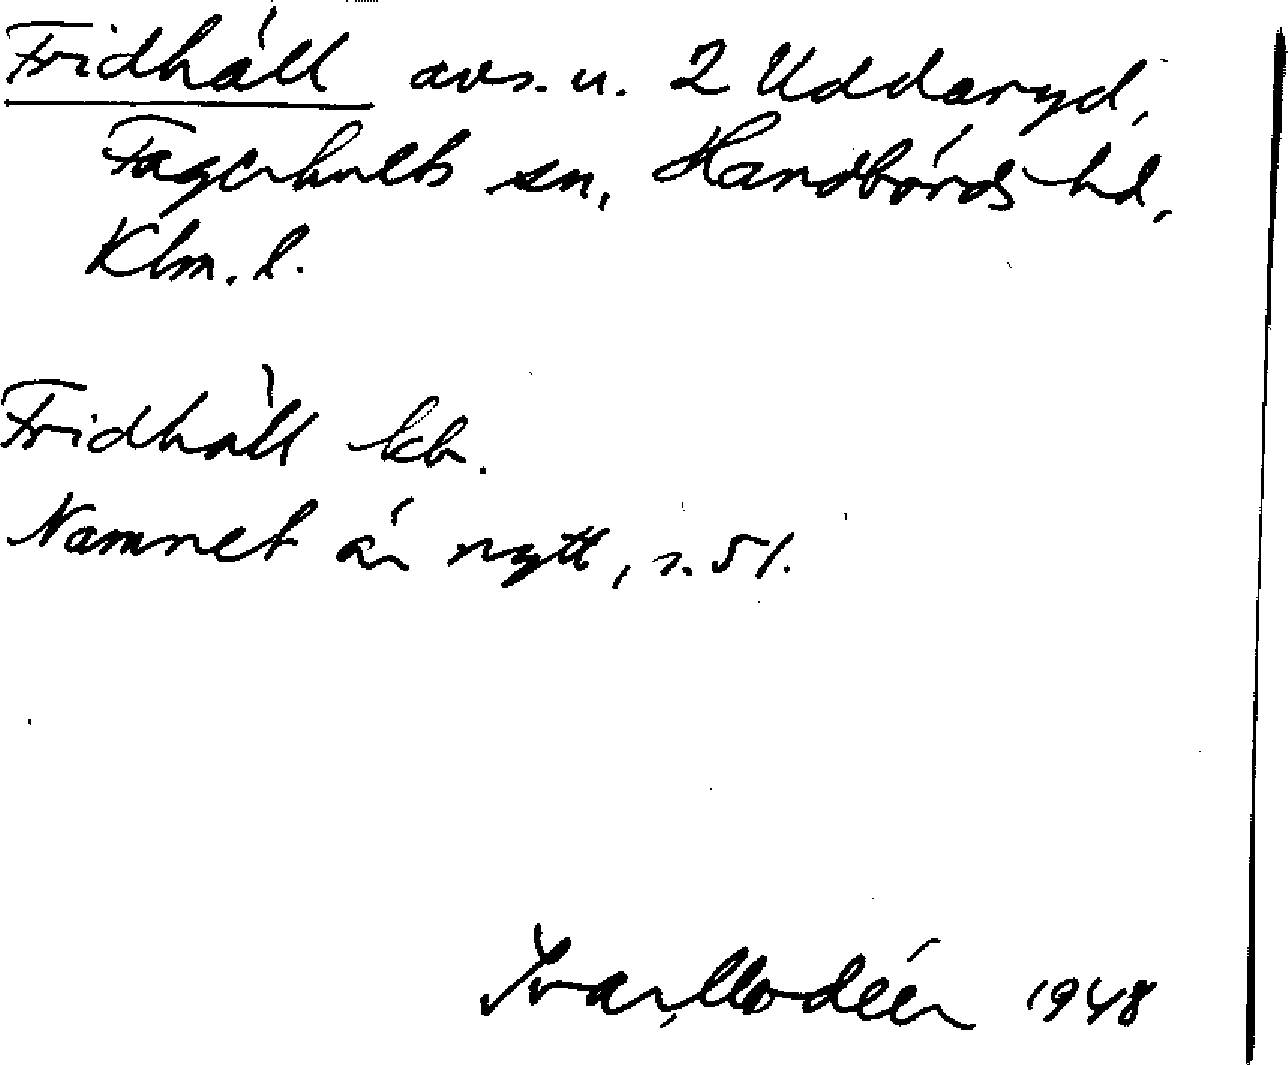 Fridhäll avs. u. 2 Uddaryd,
Fagerhults sn, Handbörds hd,
Klm. l.
Fridhäll kb.
Namnet är nytt, s. 51.
Ivar Modéer 1948